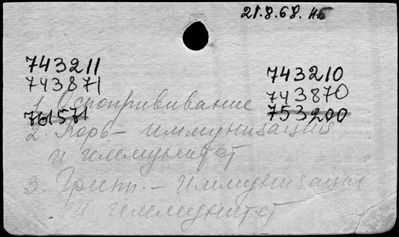 21.8.68. НБ
743211
743871
761571
743210
743870
753200
1. Оспопрививание
2. Корь - иммунизация
и иммунитет
3. Грипп. - Иммунизация
и иммунитет